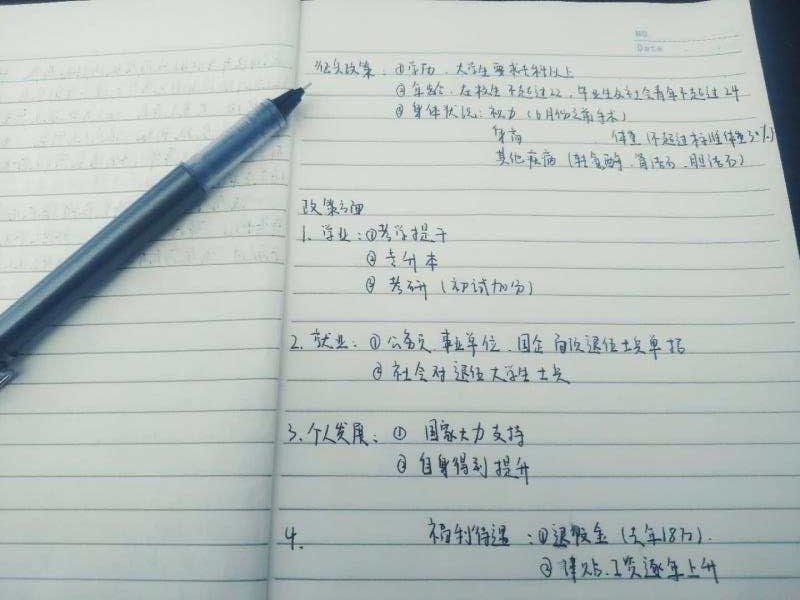 NO.
Date
征兵政策：①学历、大学生要求专科以上
②年龄、在校生不超过22、毕业生及社会青年不超过24
③身体状况：视力（6月份之前手术）
身高 体重（不超过标准体重30%）
其他疾病（转氨酶、肾结石、胆结石）
政策方面
1、学业：①考学提干
②专升本
③考研（初试加分）
2、就业：①公务员、事业单位、国企面向退伍士兵单招
②社会对退伍大学生士兵
3、个人发展：① 国家大力支持
②自身得到提升
4、 福利待遇：①退役金（去年18万）.
②津贴、工资逐年上升